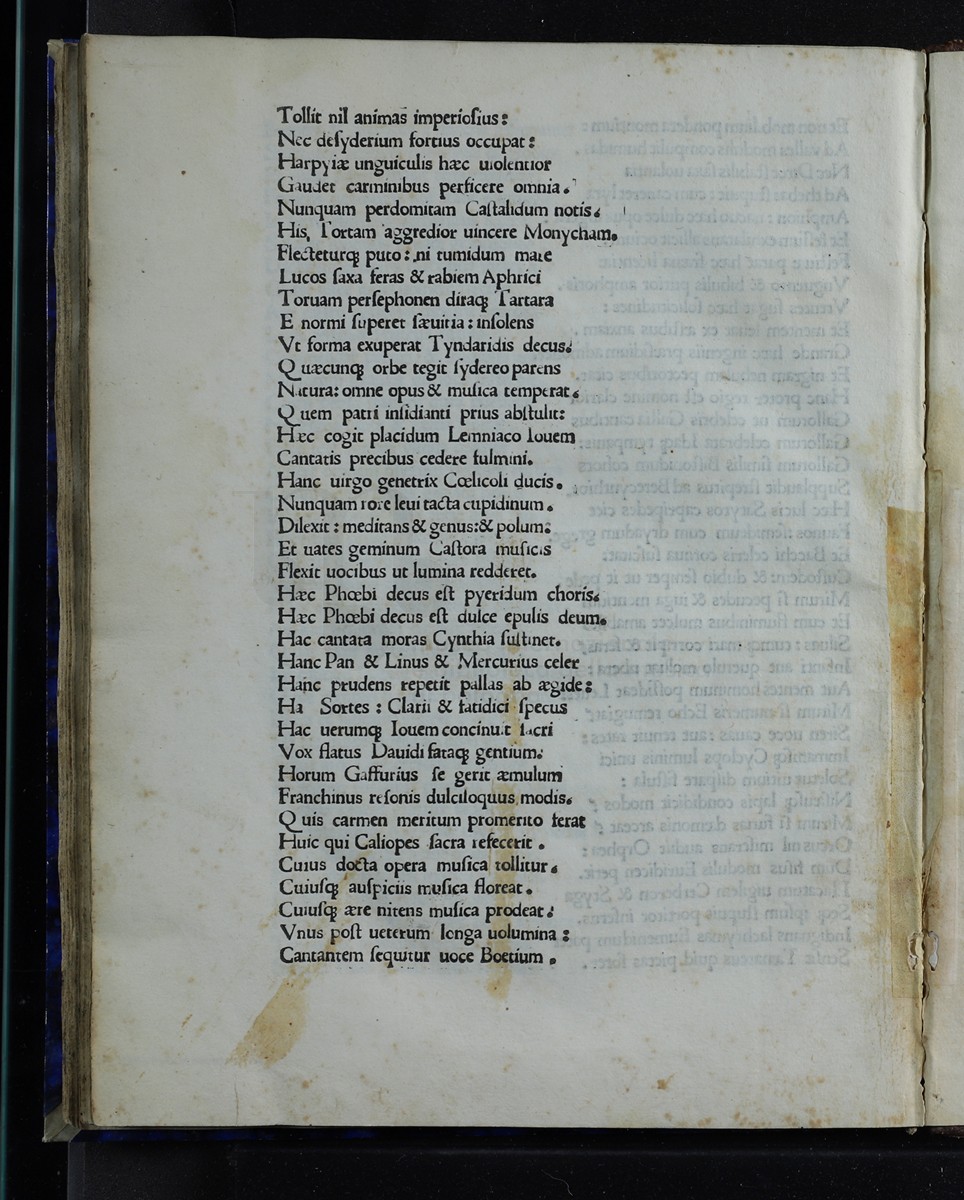 Tollit nil animas imperiosius:
Nec desyderium fortius occupat:
Harpyiæ unguiculis hæc uiolentior
Gaudet carminibus perficere omnia.
Nunquam perdomitam Castalidum notis.
His, Tortam aggredior uincere Monycham.
Flecteturq; puto: ni tumidum mare
Lucos saxa feras & rabiem Aphrici
Toruam persephonen diraq; Tartara
E normi superet sæuitia: insolens
Vt forma exuperat Tyndaridis decus.
Quæcunq; orbe tegit sydereo parens
Natura: omne opus & musica temperat.
Quem patri insidianti prius abstulit:
Hæc cogit placidum Lemniaco Iouem
Cantatis precibus cedere fulmini.
Hanc uirgo genetrix Cœlicoli ducis.
Nunquam rore leui tacta cupidinum.
Dilexit: meditans & genus: & polum:
Et uates geminum Castora musicis
Flexit uocibus ut lumina redderet.
Hæc Phœbi decus est pyeridum choris.
Hæc Phœbi decus est dulce epulis deum.
Hac cantata moras Cynthia sustinet.
Hanc Pan & Linus & Mercurius celer
Hanc prudens repetit pallas ab ægide:
Ha Sortes: Clarii & fatidici specus
Hac uerumq; Iouem concinuit sacri
Vox flatus Dauidi fataq; gentium.
Horum Gaffurius se gerit æmulum
Franchinus resonis dulciloquus modis.
Quis carmen meritum promerito ferat
Huic qui Caliopes sacra refecerit.
Cuius docta opera musica tollitur.
Cuiusq; auspiciis musica floreat.
Cuiusq; ære nitens musica prodeat.
Vnus post ueterum longa uolumina:
Cantantem sequitur uoce Boetium.